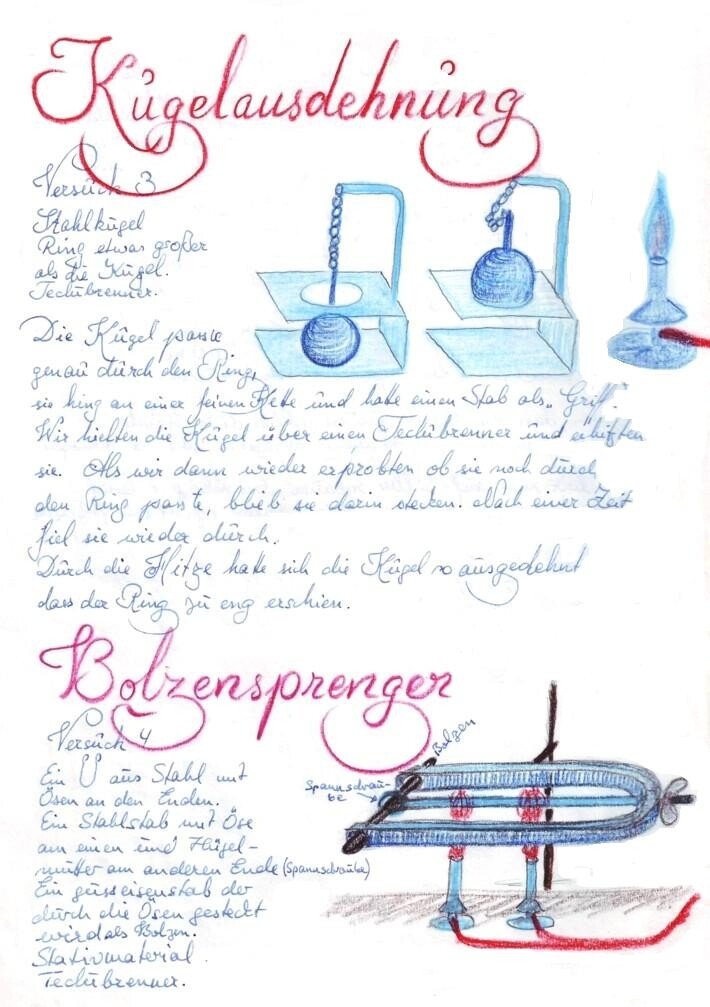 Kugelausdehnung
Versuch 3
Stahlkugel
Ring etwas großer
als die Kugel.
Teclubrenner.
Die Kugel passte
genau durch den Ring,
sie hing an einer feinen Kette und hatte einen Stab als "Griff".
Wir hielten die Kugel über einen Teclubrenner und erhitzten
sie. Als wir dann wieder erprobten ob sie noch durch
den Ring passte, blieb sie darin stecken. Nach einer Zeit
fiel sie wieder durch.
Durch die Hitze hatte sich die Kugel so ausgedehnt
dass der Ring zu eng erschien.
Bolzensprenger
Versuch 4
Ein U aus Stahl mit
Ösen an den Enden.
Ein Stahlstab mit Öse
am einen und Flügel-
mutter am anderen Ende (Spannschraube)
Ein gusseisenstab der
durch die Ösen gesteckt
wird als Bolzen.
Stativmaterial.
Teclubrenner.
Spannschrau-
be
Bolzen